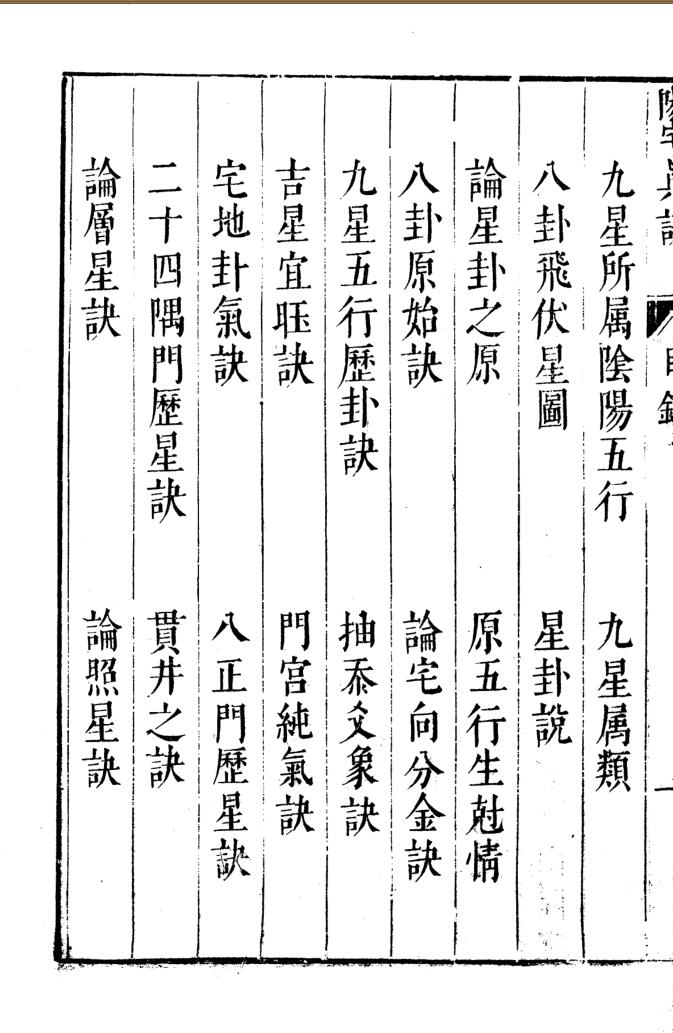 九星所属陰陽五行　九星属類
八卦飛伏星圖　星卦說
論星卦之原　原五行生尅情
八卦原始訣　論宅向分金訣
九星五行歷卦訣　抽爻象訣
吉星宜訣　門宫純氣訣
宅地卦氣訣　八正門歷星訣
二十四隅門歷星訣　貫井之訣
論層星訣　論照星訣